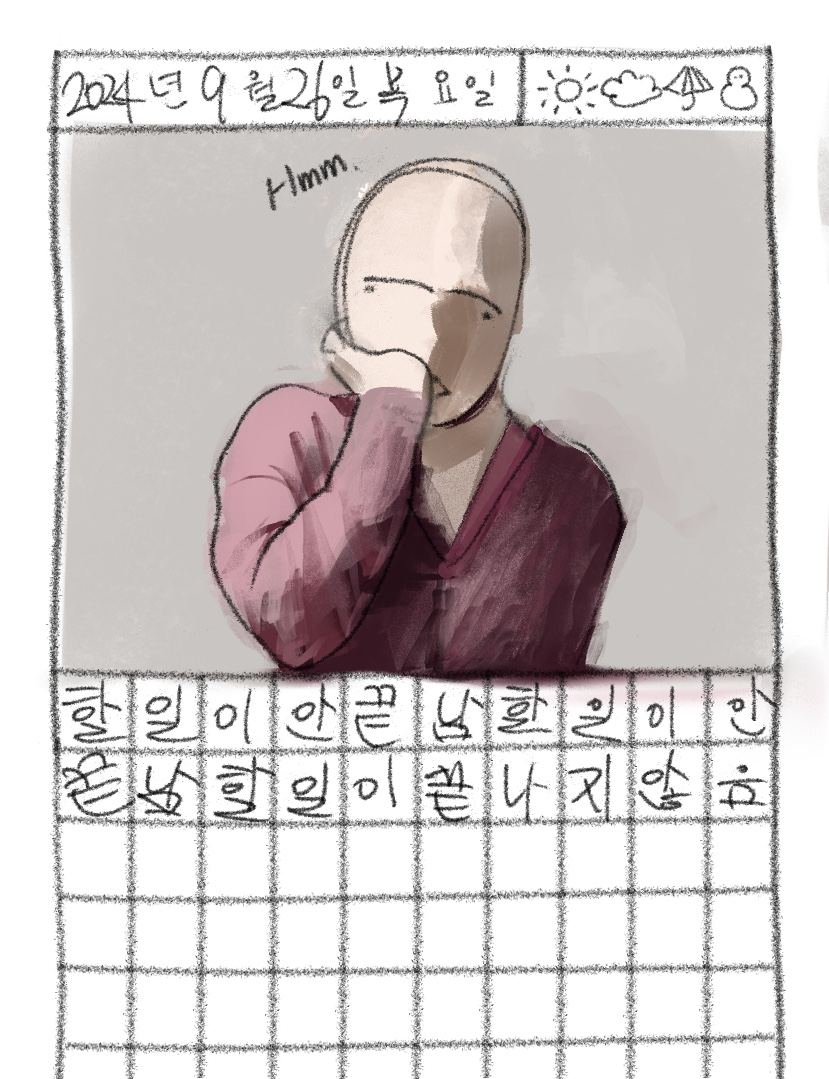 2024년 9월 26일 목요일
Hmm.
할일이안끝남할일이안
끝남할일이끝나지않음